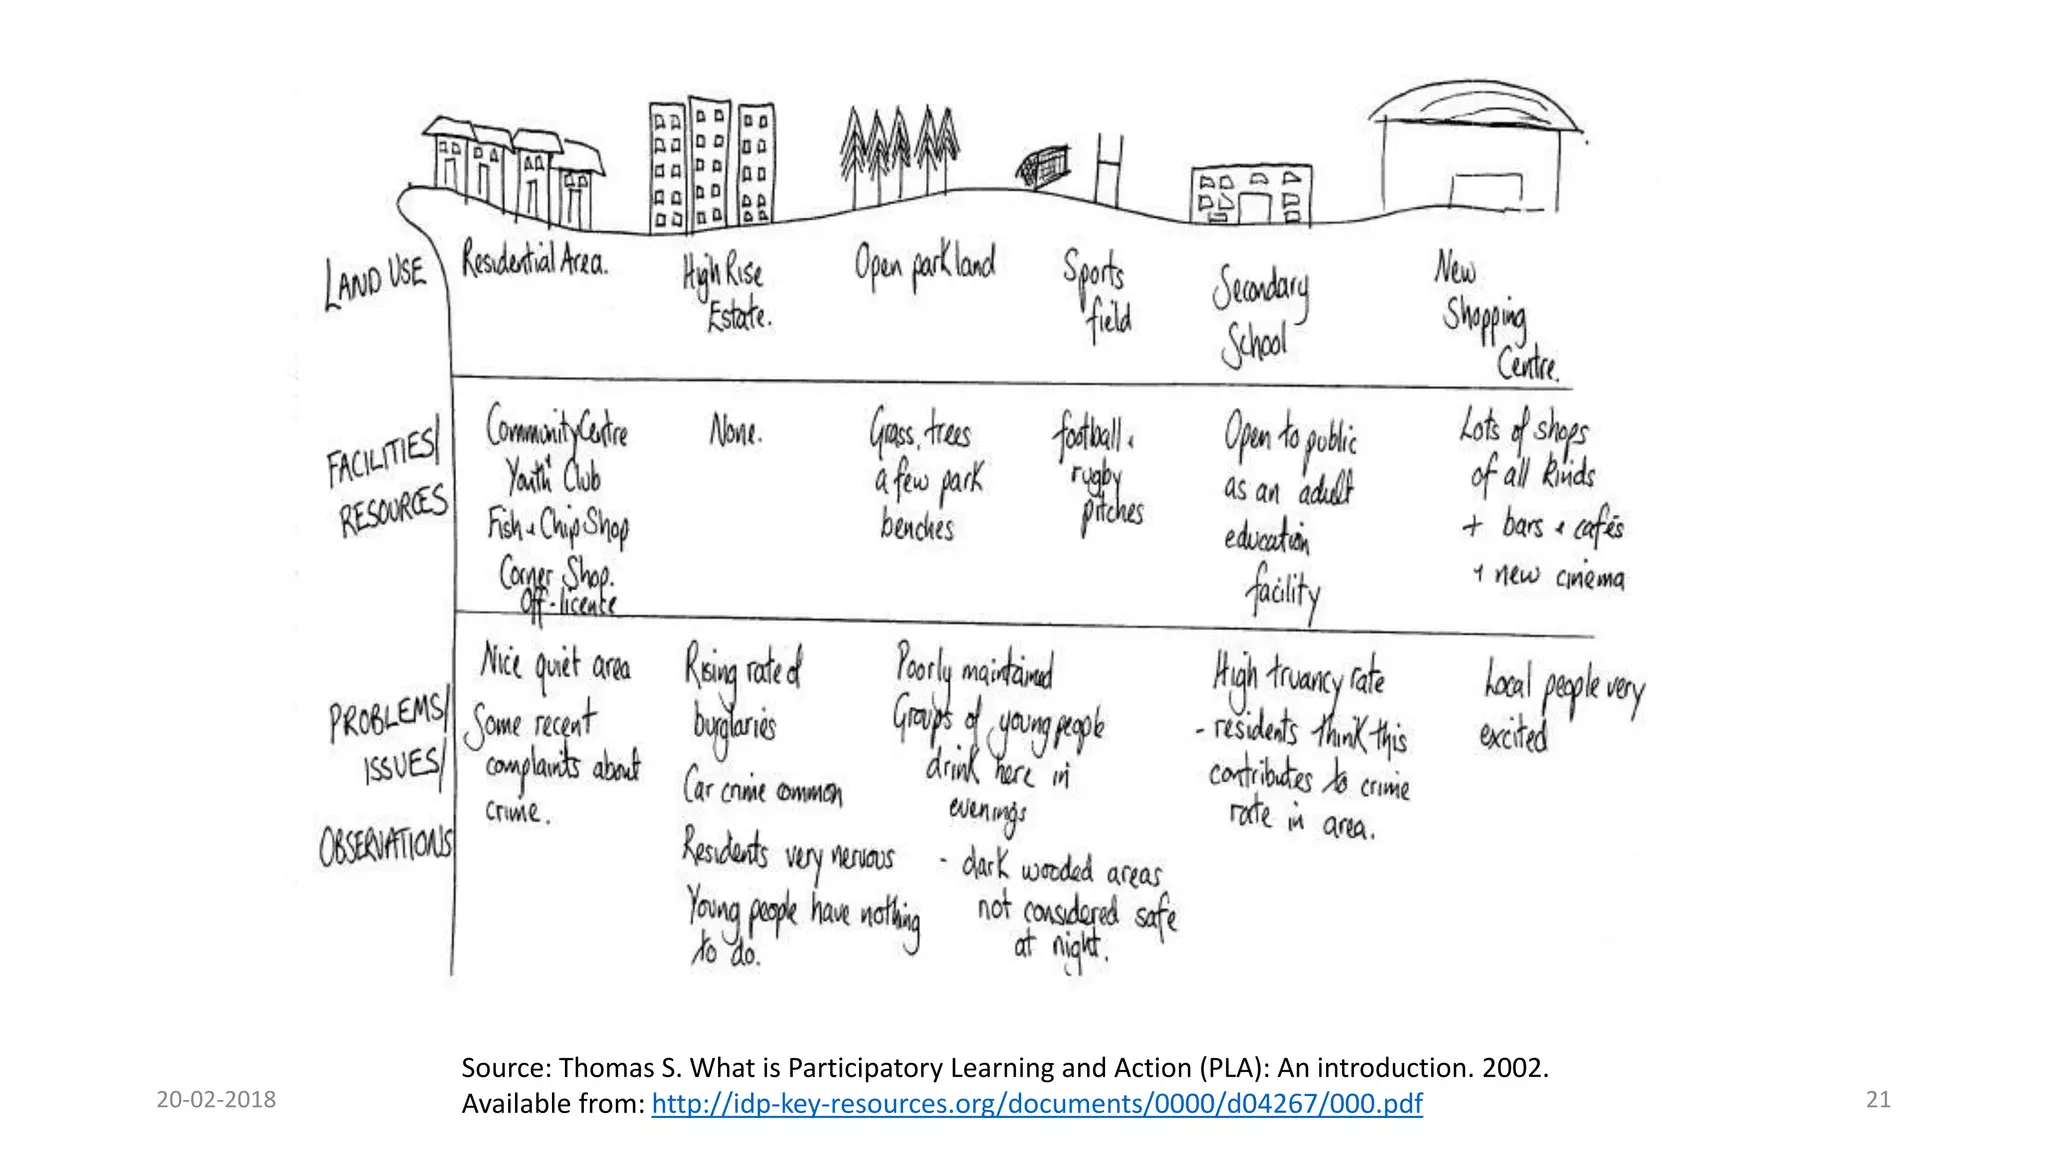 LAND USE
Residential Area.
High Rise
Estate.
Open parkland
Sports
field
Secondary
School
New
Shopping
Centre.
FACILITIES/
RESOURCES
Community Centre
Youth Club
Fish + Chip Shop
Corner Shop.
Off-licence
None.
Grass, trees
a few park
benches
football +
rugby
pitches
Open to public
as an adult
education
facility
Lots of shops
of all kinds
+ bars + cafés
+ new cinema
PROBLEMS/
ISSUES/
OBSERVATIONS
Nice quiet area
Some recent
complaints about
crime.
Rising rate of
burglaries
Car crime common
Residents very nervous
Young people have nothing
to do.
Poorly maintained
Groups of young people
drink here in
evenings
- dark wooded areas
not considered safe
at night.
High truancy rate
- residents think this
contributes to crime
rate in area.
Local people very
excited
Source: Thomas S. What is Participatory Learning and Action (PLA): An introduction. 2002.
Available from: http://idp-key-resources.org/documents/0000/d04267/000.pdf
20-02-2018
21